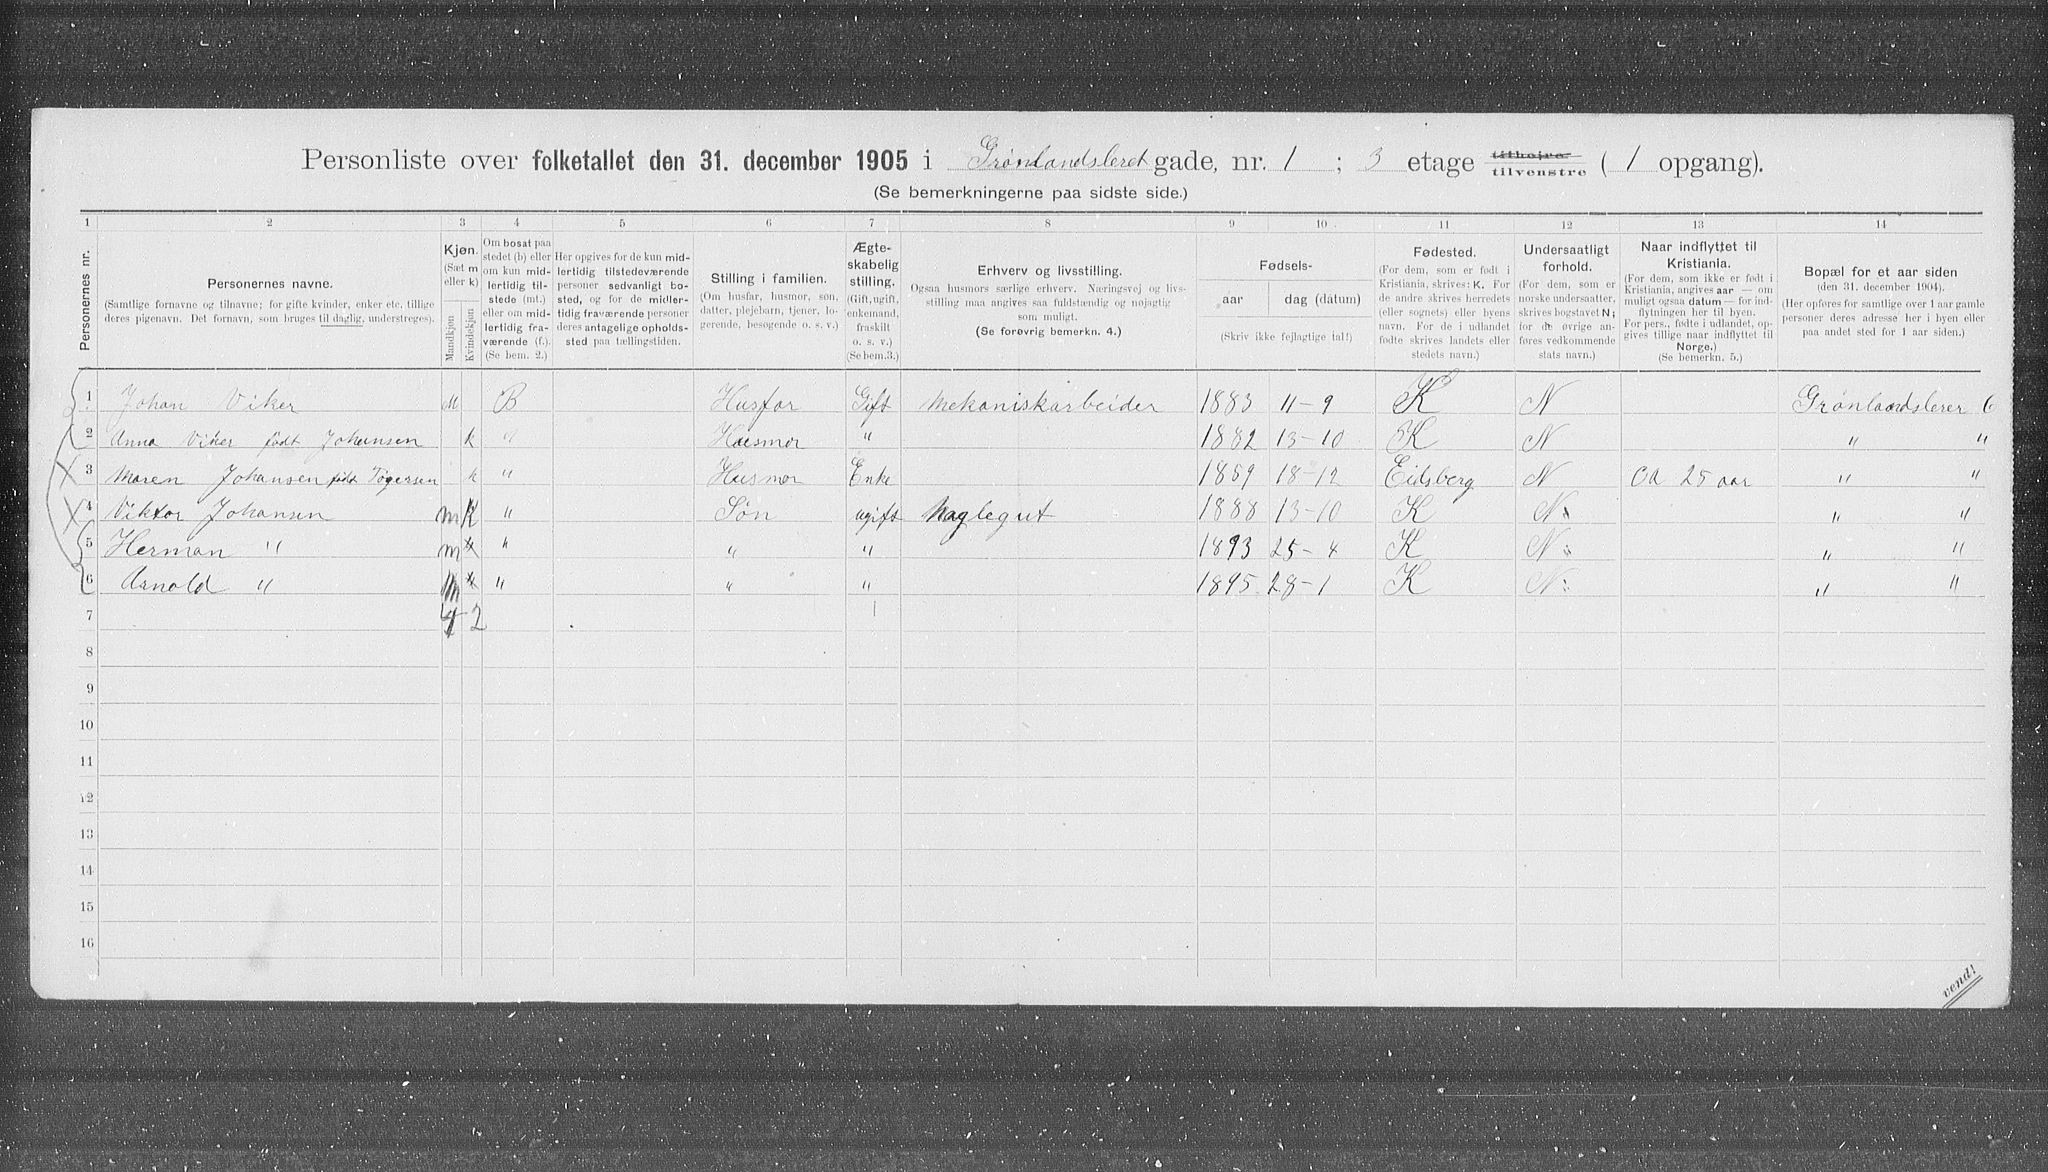 Personliste over folketallet den 31. december 1905 i Grønlandsleret gade, nr. 1 ; 3 etage tilhøire tilvenstre ( 1 opgang).
(Se bemerkningerne paa sidste side.)
1 2 3 4 5 6 7 8 9 10 11 12 13 14
Personernes nr.
Personernes navne.
(Samtlige fornavne og tilnavne; for gifte kvinder, enker etc. tillige
deres pigenavn. Det fornavn, som bruges til daglig, understreges).
Kjøn.
(Sæt m
eller k)
Mandkjøn
Kvindekjøn
Om bosat paa
stedet (b) eller
om kun mid-
lertidig til-
stede (mt.)
eller om mid-
lertidig fra-
værende (f.).
(Se bem. 2.)
Her opgives for de kun mid-
lertidig tilstedeværende
personer sedvanligt bo-
sted, og for de midler-
tidig fraværende personer
deres antagelige opholds-
sted paa tællingstiden.
Stilling i familien.
(Om husfar, husmor, søn,
datter, plejebarn, tjener, lo-
gerende, besøgende o. s. v.)
Ægte-
skabelig
stilling.
(Gift, ugift,
enkemand,
fraskilt
o. s. v.)
(Se bem. 3.)
Erhverv og livsstilling.
Ogsaa husmors særlige erhverv. Næringsvej og livs-
stilling maa angives saa fuldstændig og nøjagtig
som muligt.
(Se forøvrig bemerkn. 4.)
Fødsels-
aar dag (datum)
(Skriv ikke fejlagtige tal!)
Fødested.
(For dem, som er født i
Kristiania, skrives: K. For
de andre skrives herredets
(eller sognets) eller byens
navn. For de i udlandet
fødte skrives landets eller
stedets navn.)
Undersaatligt
forhold.
(For dem, som er
norske undersaatter,
skrives bogstavet N;
for de øvrige an-
føres vedkommende
stats navn.)
Naar indflyttet til
Kristiania.
(For dem, som ikke er født i
Kristiania, angives aar — om
muligt ogsaa datum — for ind-
flytningen her til byen.
For pers., fødte i udlandet, op-
gives tillige naar indflyttet til
Norge.)
(Se bemerkn. 5.)
Bopæl for et aar siden
(den 31. december 1904).
(Her opføres for samtlige over 1 aar gamle
personer deres adresse her i byen eller
paa andet sted for 1 aar siden.)
1 Johan Viker M B Husfar Gift Mekaniskarbeider 1883 11-9 K N Grønlandslerer 6
2 Anna Viker født Johansen k " Husmor " 1882 13-10 K N " "
3 Maren Johansen født Tøgersen k " Husmor Enke 1859 18-12 Eidsberg N ca 25 aar " "
4 Viktor Johansen m K " Søn ugift Naglegut 1888 13-10 K N " "
5 Herman " m " " " 1893 25-4 K N " "
6 Arnold " m " " " 1895 28-1 K N " "
7 4 2
8
9
10
11
12
13
14
15
16
vend!